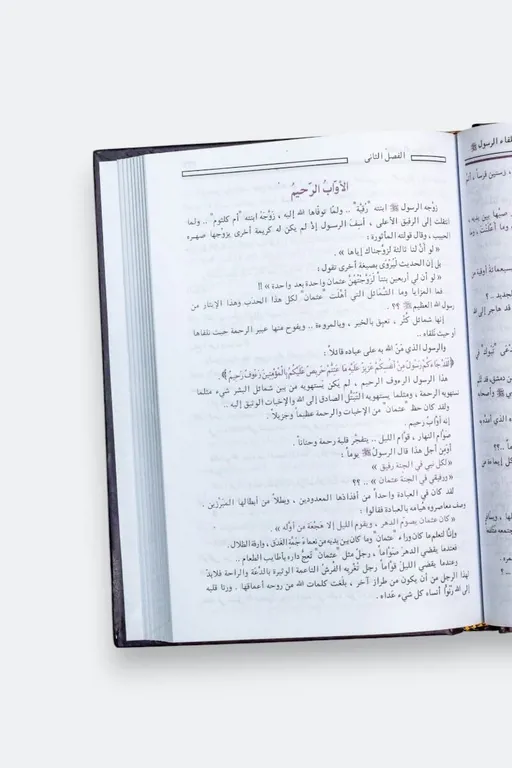 الفصل الثانى
الأوّابُ الرّحيمُ
زوّجه الرسول ﷺ ابنته "رُقيّة" .. ولمّا توفّاها الله إليه ، زوّجهُ ابنته "أم كلثوم" .. ولما
انتقلت إلى الرفيق الأعلى ، أسِفَ الرسول إذْ لم يكن له كريمة أخرى يزوّجها صهره
الحبيب ، وقال قولته المأثورة :
« لو أنّ لنا ثالثة لزوّجناك إياها » .
بل إن الحديث ليُرْوَى بصيغة أخرى تقول :
« لو أن لي أربعين بنتاً لَزوّجتُهُنّ عثمان واحدة بعد واحدة » !!
فما المزايا وما الشّمائل التي أهّلَتْ "عثمان" لكل هذا الحدب وهذا الإيثار من
رسول الله العظيم ﷺ ؟؟ .
إنها شمائل كُثُر ، تعبق بالخير ، وبالمروءة .. ويفوح منها عبير الرحمة حيث تلقاها
أو حيث تلقاه ..
والرسول الذي مَنّ الله به على عباده قائلاً :
﴿لَقَدْ جَاءَكُمْ رَسُولٌ مِنْ أَنْفُسِكُمْ عَزِيزٌ عَلَيْهِ مَا عَنِتُّمْ حَرِيصٌ عَلَيْكُمْ بِالْمُؤْمِنِينَ رَءُوفٌ رَحِيمٌ﴾
هذا الرسول الرءوف الرحيم ، لم يكن يَستهويه من بين شمائل البشر شيء مثلما
تستهويه الرحمة ، ومثلما يستهويه التبتّل الصادق إلى الله والإخبات الوثيق إليه ..
ولقد كان حظ "عثمان" من الإخبات والرحمة عظيماً وجزيلاً .
إنه أوّابٌ رحيم .
صوّام النهار ، قوّام الليل .. يتفجّر قلبه رحمة وحناناً .
أوَمِن أجل هذا قال الرسول ﷺ يوماً :
« لكل نبي في الجنة رفيق »
« ورفيقي في الجنة عثمان » .. ؟؟
لقد كان في العبادة واحداً من أفذاذها المعدودين ، وبطلاً من أبطالها المبرّزين .
وصف معاصروه هيامه بالعبادة فقالوا :
« كان عثمان يصوم الدهر ، ويقوم الليل إلا هَجْعَة من أوّله » .
وإنّا لنعلم ما كان وراء "عثمان" وما كان بين يديه من نعماءَ جَمّة الغَدَق ، وارفة الظلال .
فعندما يقضي الدهرَ صَوّاماً ، رجلٌ مثل "عثمان" تَعجّ داره بأطايب الطعام ..
وعندما يقضي الليلَ قوّاماً رجل تُغْريه الفُرشُ الناعمة الوثيرة بالدّعَة والراحة فلابدّ
لهذا الرجل من أن يكون من طراز آخر ، بلغت كلمات الله من روحه أعماقها . ورنا قلبه
إلى الله رُنُوّاً أنساه كل شيء عَداه .